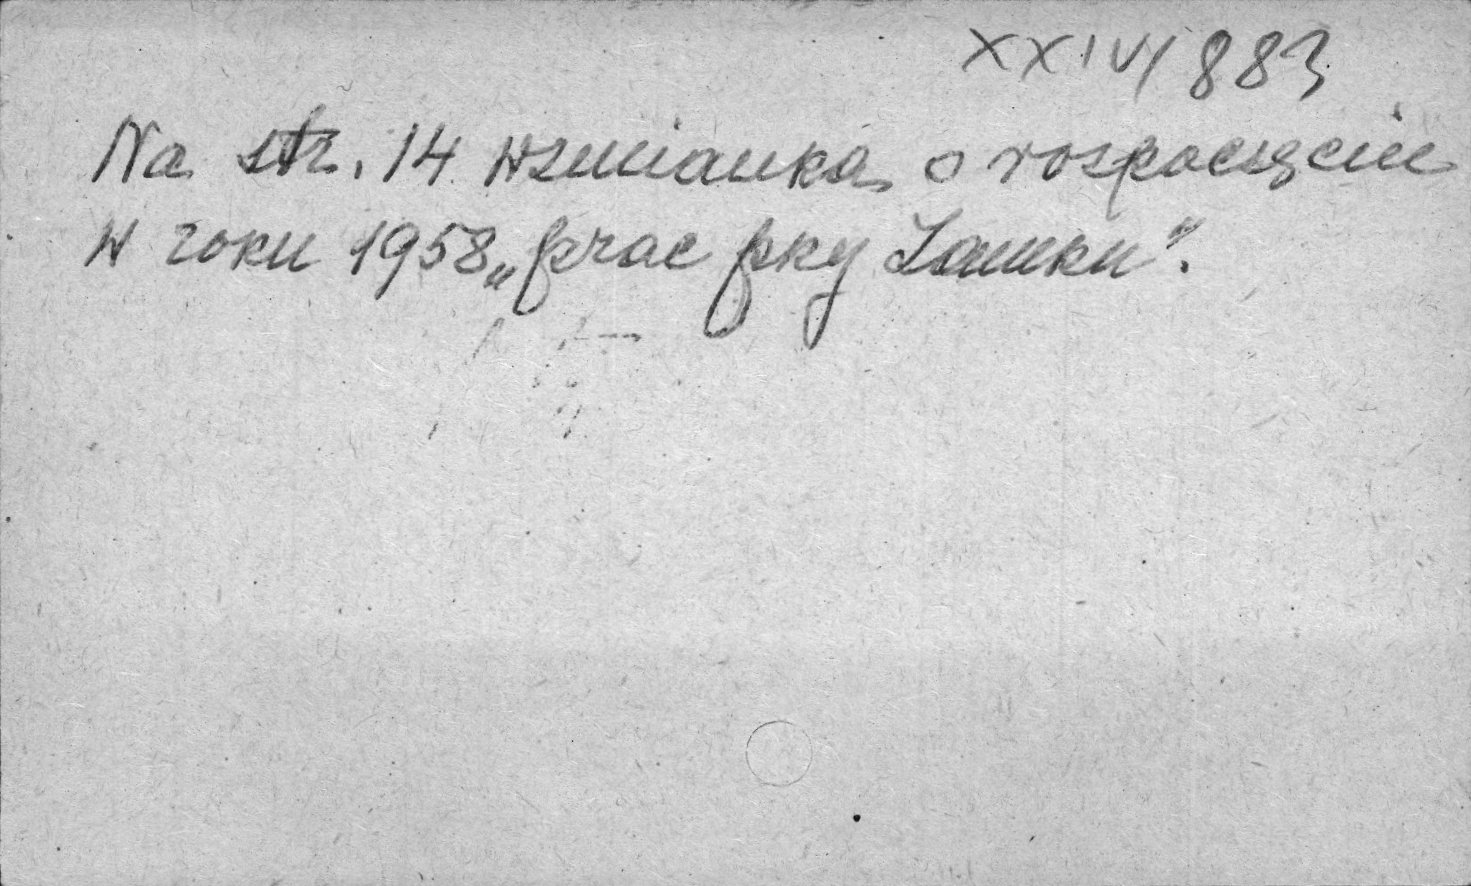 XXIV/883
Na str. 14 wzmianka o rozpoczęciu
w roku 1958 „prac przy Zamku”.